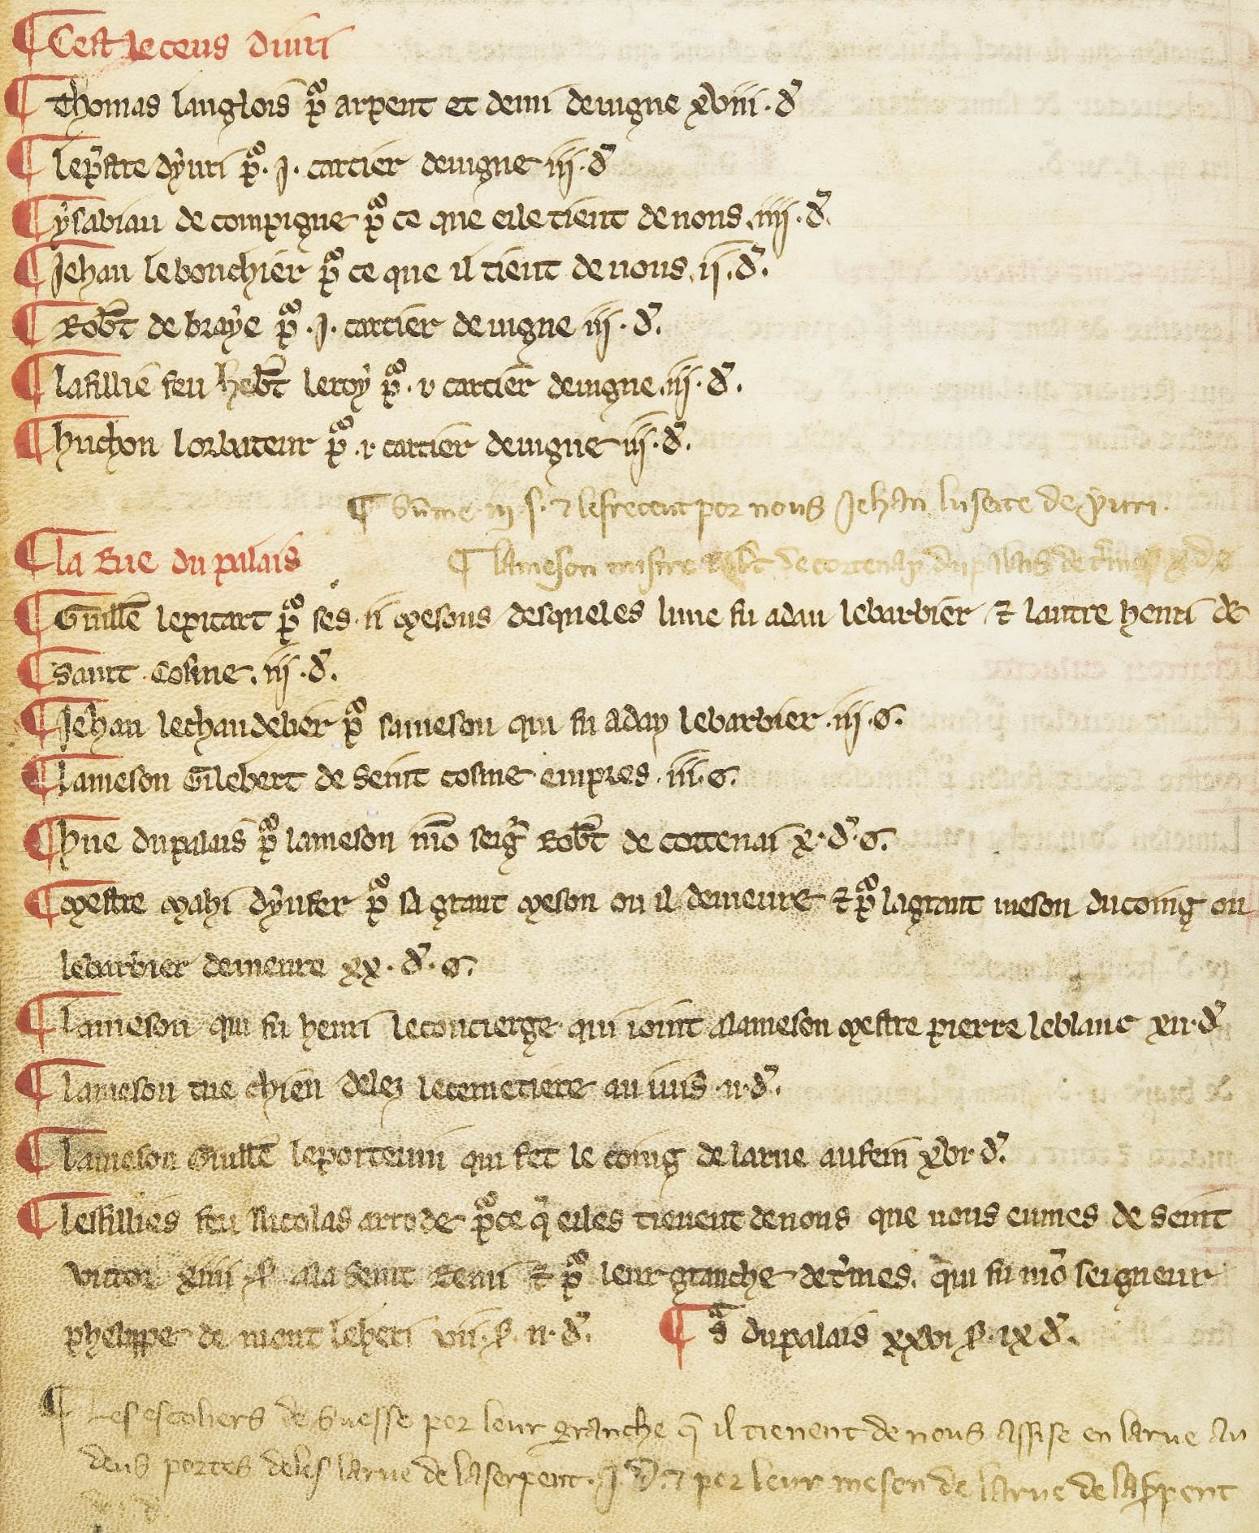 ¶ Cest le cens diuri
¶ Thomas langlois p̄ arpent et demi de uigne xviii · d'
¶ le p̄stre dyuri p̄ · i · cartier de uigne iij · d'
¶ ysabiau de compigne p̄ ce que ele tient de nous · iiij · d'.
¶ Jehan le bouchier p̄ ce que il tient de nous · ij · d'.
¶ Rob̄t de braye p̄ · i · cartier de uigne iij · d'.
¶ la fillie feu heb̄t le roy p̄ · i cartier de uigne · iij · d'.
¶ huchon lorbateur p̄ · i · cartier de uigne iij · d'.
¶ sūme iij · s · ⁊ les recent por nous Jehan de yuri ·
¶ la Rue du palais ¶ la meson misire Rob̄t de cortenay du palais de
¶ Guill̄e le pitart p̄ ses · ii mesons des queles lune fu adan le barbier ⁊ lautre henri de
¶ saint cosme · iij · d'.
¶ Jehan le chandelier p̄ sa meson qui fu adan le barbier · iij · o'.
¶ la meson Gilebert de seint cosme empres · iij · o'.
¶ hue du palais p̄ la meson mō seig̃r Rob̄t de cortenai x · d' · o'.
¶ mestre mahi dyuker p̄ sa grant meson ou il demeure ⁊ p̄ la grant meson du coing ou
le barbier demeure xx · d' · o'.
¶ la meson qui fu henri le concierge qui ioint a la meson mestre pierre le blanc xii · d'
¶ la meson tue chien delez le cemetiere au iuis · ii · d'.
¶ la meson Guill̄e le portenin qui fet le coing de la rue au fein xvi · d'.
¶ les fillies feu Nicolas arrode p̄ ce q̄ eiles tienent de nous que nous eumes de seint
uictor xiiii · s' a la seint Remi ⁊ p̄ leur granche de t̄mes · qui fu mō seigneur
phelippe de mont leheri vii · s' · ii · d'. ¶ sᵃ du palais xxvi s' · ix d'.
¶ Les escoliers de suesse por leur granche q̄ il tienent de nous assise en la rue au
deus portes deles la rue de la serpent · i · d' · ⁊ por leur meson de la rue de la sp̄ent